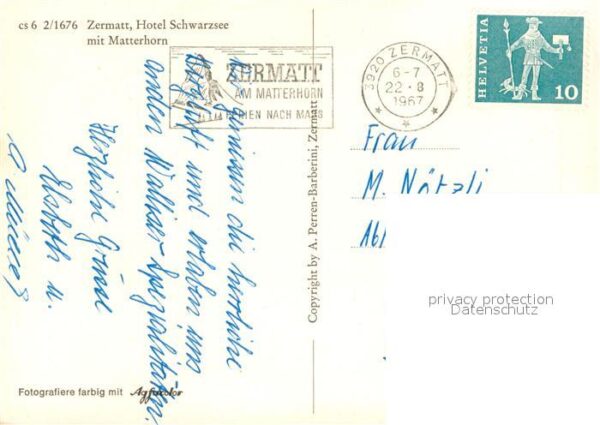 cs 6 2/1676 Zermatt, Hotel Schwarzsee
mit Matterhorn
ZERMATT
AM MATTERHORN
FERIEN NACH MASS
3920 ZERMATT
6-7
22-8
1967
HELVETIA
10
Wir geniessen die herrliche
Bergluft und erlaben uns
an den Walliser Spezialitäten.
Herzliche Grüsse
Elsbeth u.
Frau
M. Nötzli
Copyright by A. Perren-Barberini, Zermatt
privacy protection
Datenschutz
Fotografiere farbig mit Agfacolor